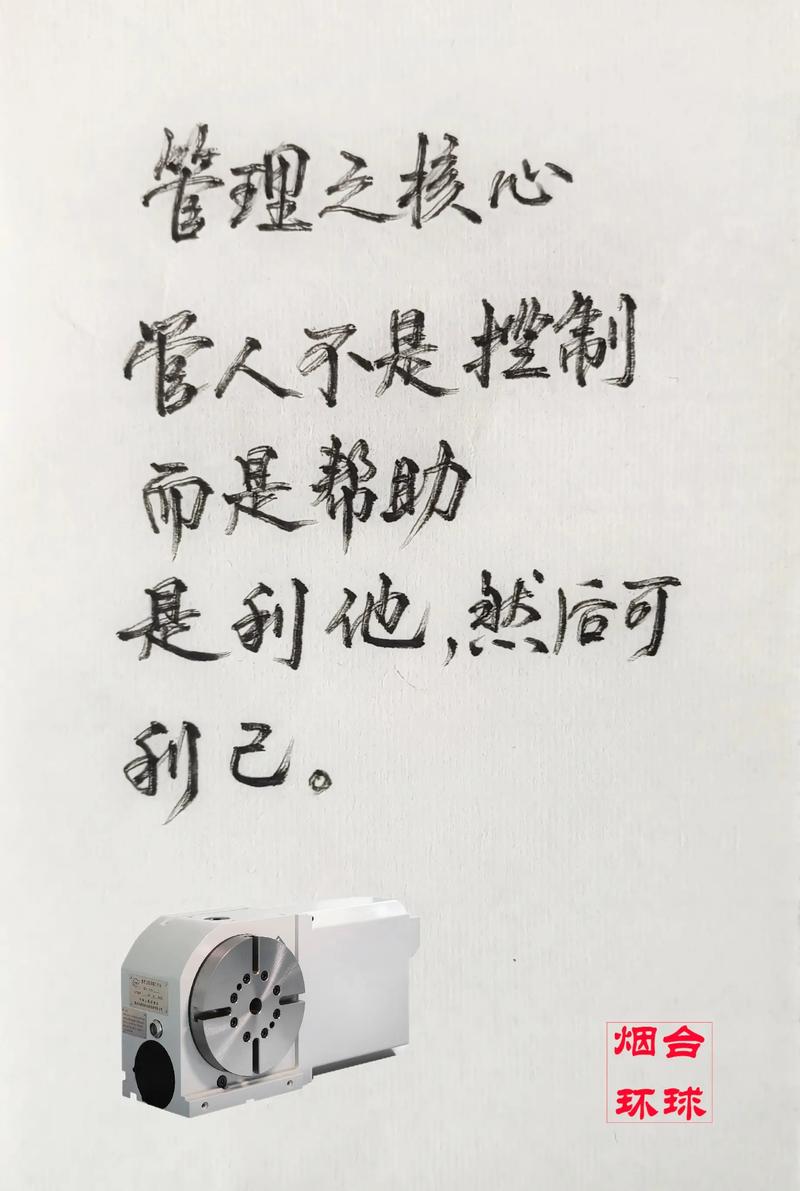 管理之核心
管人不是控制
而是帮助
是利他,然后可
利己。
烟台
环球